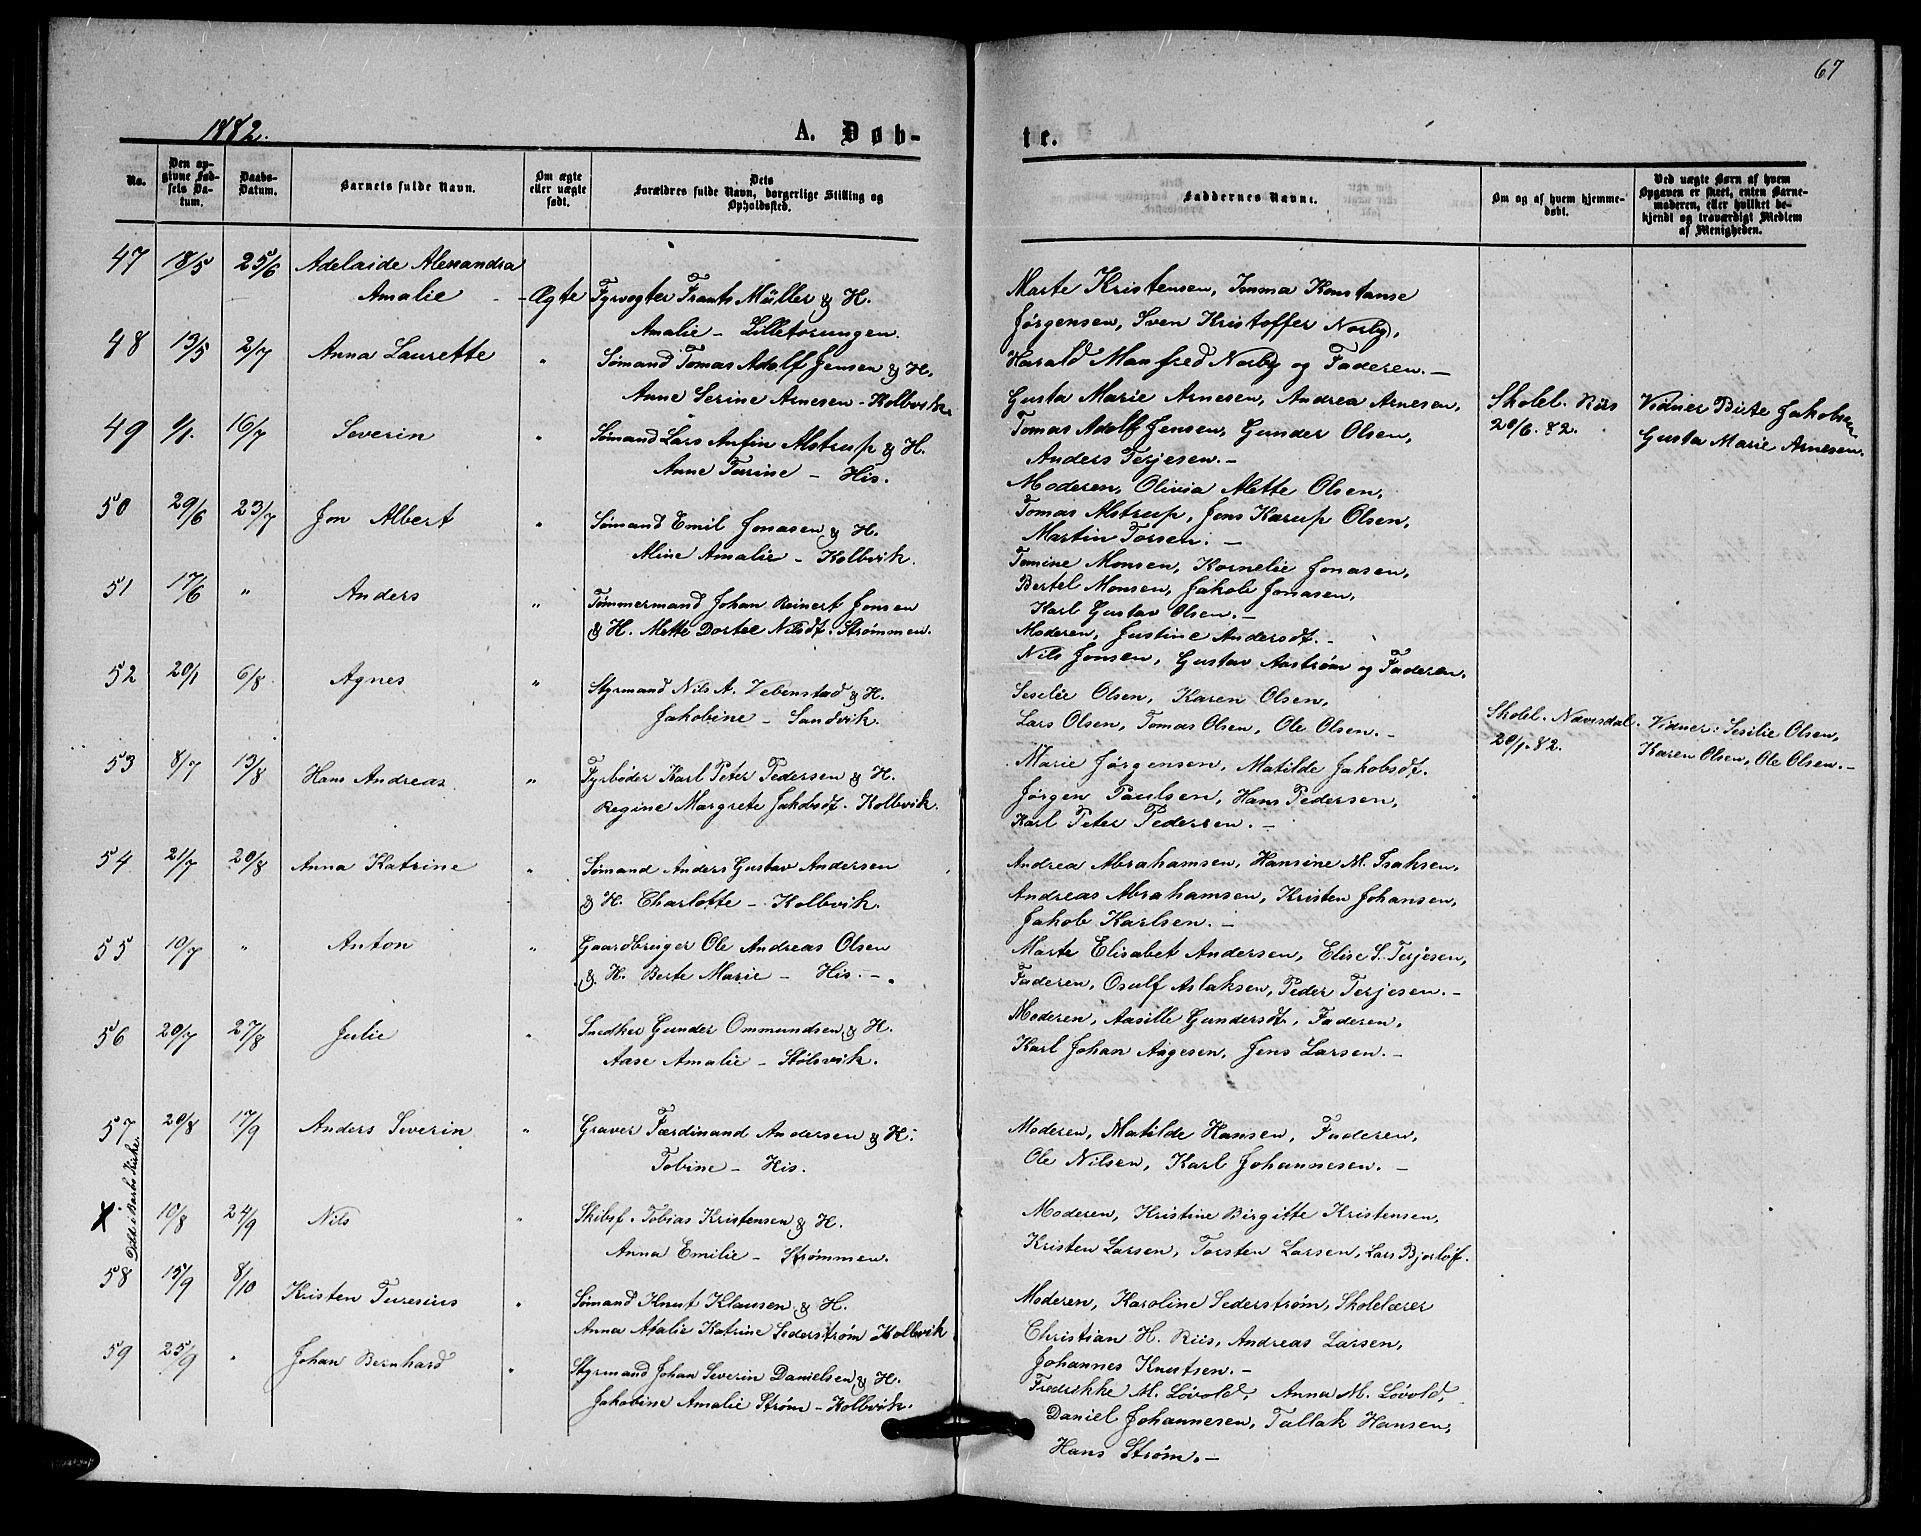 67
1882.
A. Døb-
te.
No.
Den op-
givne Fød-
sels Da-
tum.
Daabs-
Datum.
Barnets fulde Navn.
Om ægte
eller uægte
født.
Dets
Forældres fulde Navn, borgerlige Stilling og
Opholdssted.
Faddernes Navne.
Om og af hvem hjemme-
døbt.
Ved uægte Børn af hvem
Opgaven er skeet, enten Barne-
moderen, eller hvilket be-
kjendt og troværdigt Medlem
af Menigheden.
47 18/5 25/6 Adelaide Alexandra
Amalie - Ægte Fyrvogter Frants Müller & H.
Amalie - Lilletorungen.
48 13/5 2/7 Anna Laurette " Sømand Tomas Adolf Jensen & H.
Anne Serine Arnesen - Kolbvik.
49 9/1. 16/7 Severin " Sømand Lars Anfin Alstrup & H.
Anne Tarine - His.
50 29/6 23/7 Jon Albert " Sømand Emil Jonasen & H.
Aline Amalie - Kolbvik.
51 17/6 " Anders " Tømmermand Johan Reinert Jonsen
& H. Mette Dortee Nilsdt. Strømmen.
52 20/1 6/8 Agnes " Styrmand Nils A. Vebenstad & H.
Jakobine - Sandvik.
53 8/7 13/8 Hans Andreas. " Fyrbøder Karl Peter Pedersen & H.
Regine Margrete Jakobsdt. Kolbvik.
54 21/7 20/8 Anna Katrine " Sømand Anders Gustav Andersen
& H. Charlotte - Kolbvik.
55 10/7 " Anton " Gaardbruger Ole Andreas Olsen
& H. Berte Marie - His. -
56 20/7 27/8 Julie " Snedker Gunder Ommundsen & H.
Aase Amalie - Stølsvik.
57 20/8 17/9 Anders Severin " Graver Ferdinand Andersen & H.
Tobine - His.
Døbt i Barbo Kirke.
X 10/8 24/9 Nils " Skibsf. Tobias Kristensen & H.
Anna Emilie - Strømmen.
58 15/9 8/10 Kristen Turesius " Sømand Knut Klausen & H.
Anna Atalie Katrine Sederstrøm Kolbvik
59 25/9 " Johan Bernhard " Styrmand Johan Severin Danielsen & H.
Jakobine Amalie Strøm - Kolbvik.
Marte Kristensen, Emma Konstanse
Jørgensen, Sven Kristoffer Norby,
Harald Manfred Norby og Faderen. -
Gusta Marie Arnesen, Andrea Arnesen,
Tomas Adolf Jensen, Gunder Olsen,
Anders Terjesen. -
Moderen, Olivia Alette Olsen,
Tomas Alstrup, Jens Karup Olsen,
Martin Torsen. -
Tomine Monsen, Kornelie Jonasen,
Bertel Monsen, Jakob Jonasen,
Karl Gustav Olsen. -
Moderen, Justine Andersdt. -
Nils Jonsen, Gustav Aastrøm og Faderen.
Seselie Olsen, Karen Olsen,
Lars Olsen, Tomas Olsen, Ole Olsen. -
Marie Jørgensen, Matilde Jakobsdt.
Jørgen Paulsen, Hans Pedersen,
Karl Peter Pedersen. -
Andrea Abrahamsen, Hansine M. Isaksen,
Andreas Abrahamsen, Kristen Johansen,
Jakob Karlsen. -
Marte Elisabet Andersen, Elise S. Terjesen,
Faderen, Osulf Aslaksen, Peder Terjesen. -
Moderen, Aasille Gundersdt, Faderen,
Karl Johan Aagesen, Jens Larsen. -
Moderen, Matilde Hansen, Faderen,
Ole Nilsen, Karl Johannesen. -
Moderen, Kristine Birgitte Kristensen,
Kristen Larsen, Torsten Larsen, Lars
Moderen, Karoline Sederstrøm, Skolelærer
Christian H. Riis, Andreas Larsen,
Johannes Knutsen. -
Fredrikke M. Løvold, Anna M. Løvold,
Daniel Johannesen, Tallak Hansen,
Hans Strøm. -
Skolel. Riis
20/6. 82.
Vidner Birte Jakobsen
Gusta Marie Arnesen.
Skolel. Nævisdal.
20/1. 82.
Vidner: Sesilie Olsen,
Karen Olsen, Ole Olsen. -